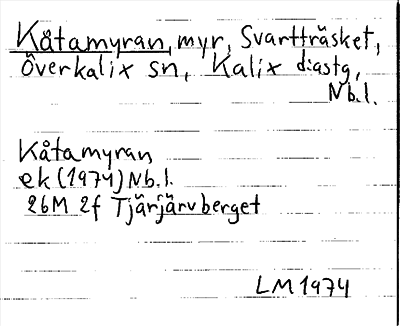 Kåtamyran, myr, Svartträsket,
Överkalix sn, Kalix d:astg,
Nb.l.
Kåtamyran
ek (1974) Nb.l.
26M 2f Tjärjärvberget
LM 1974